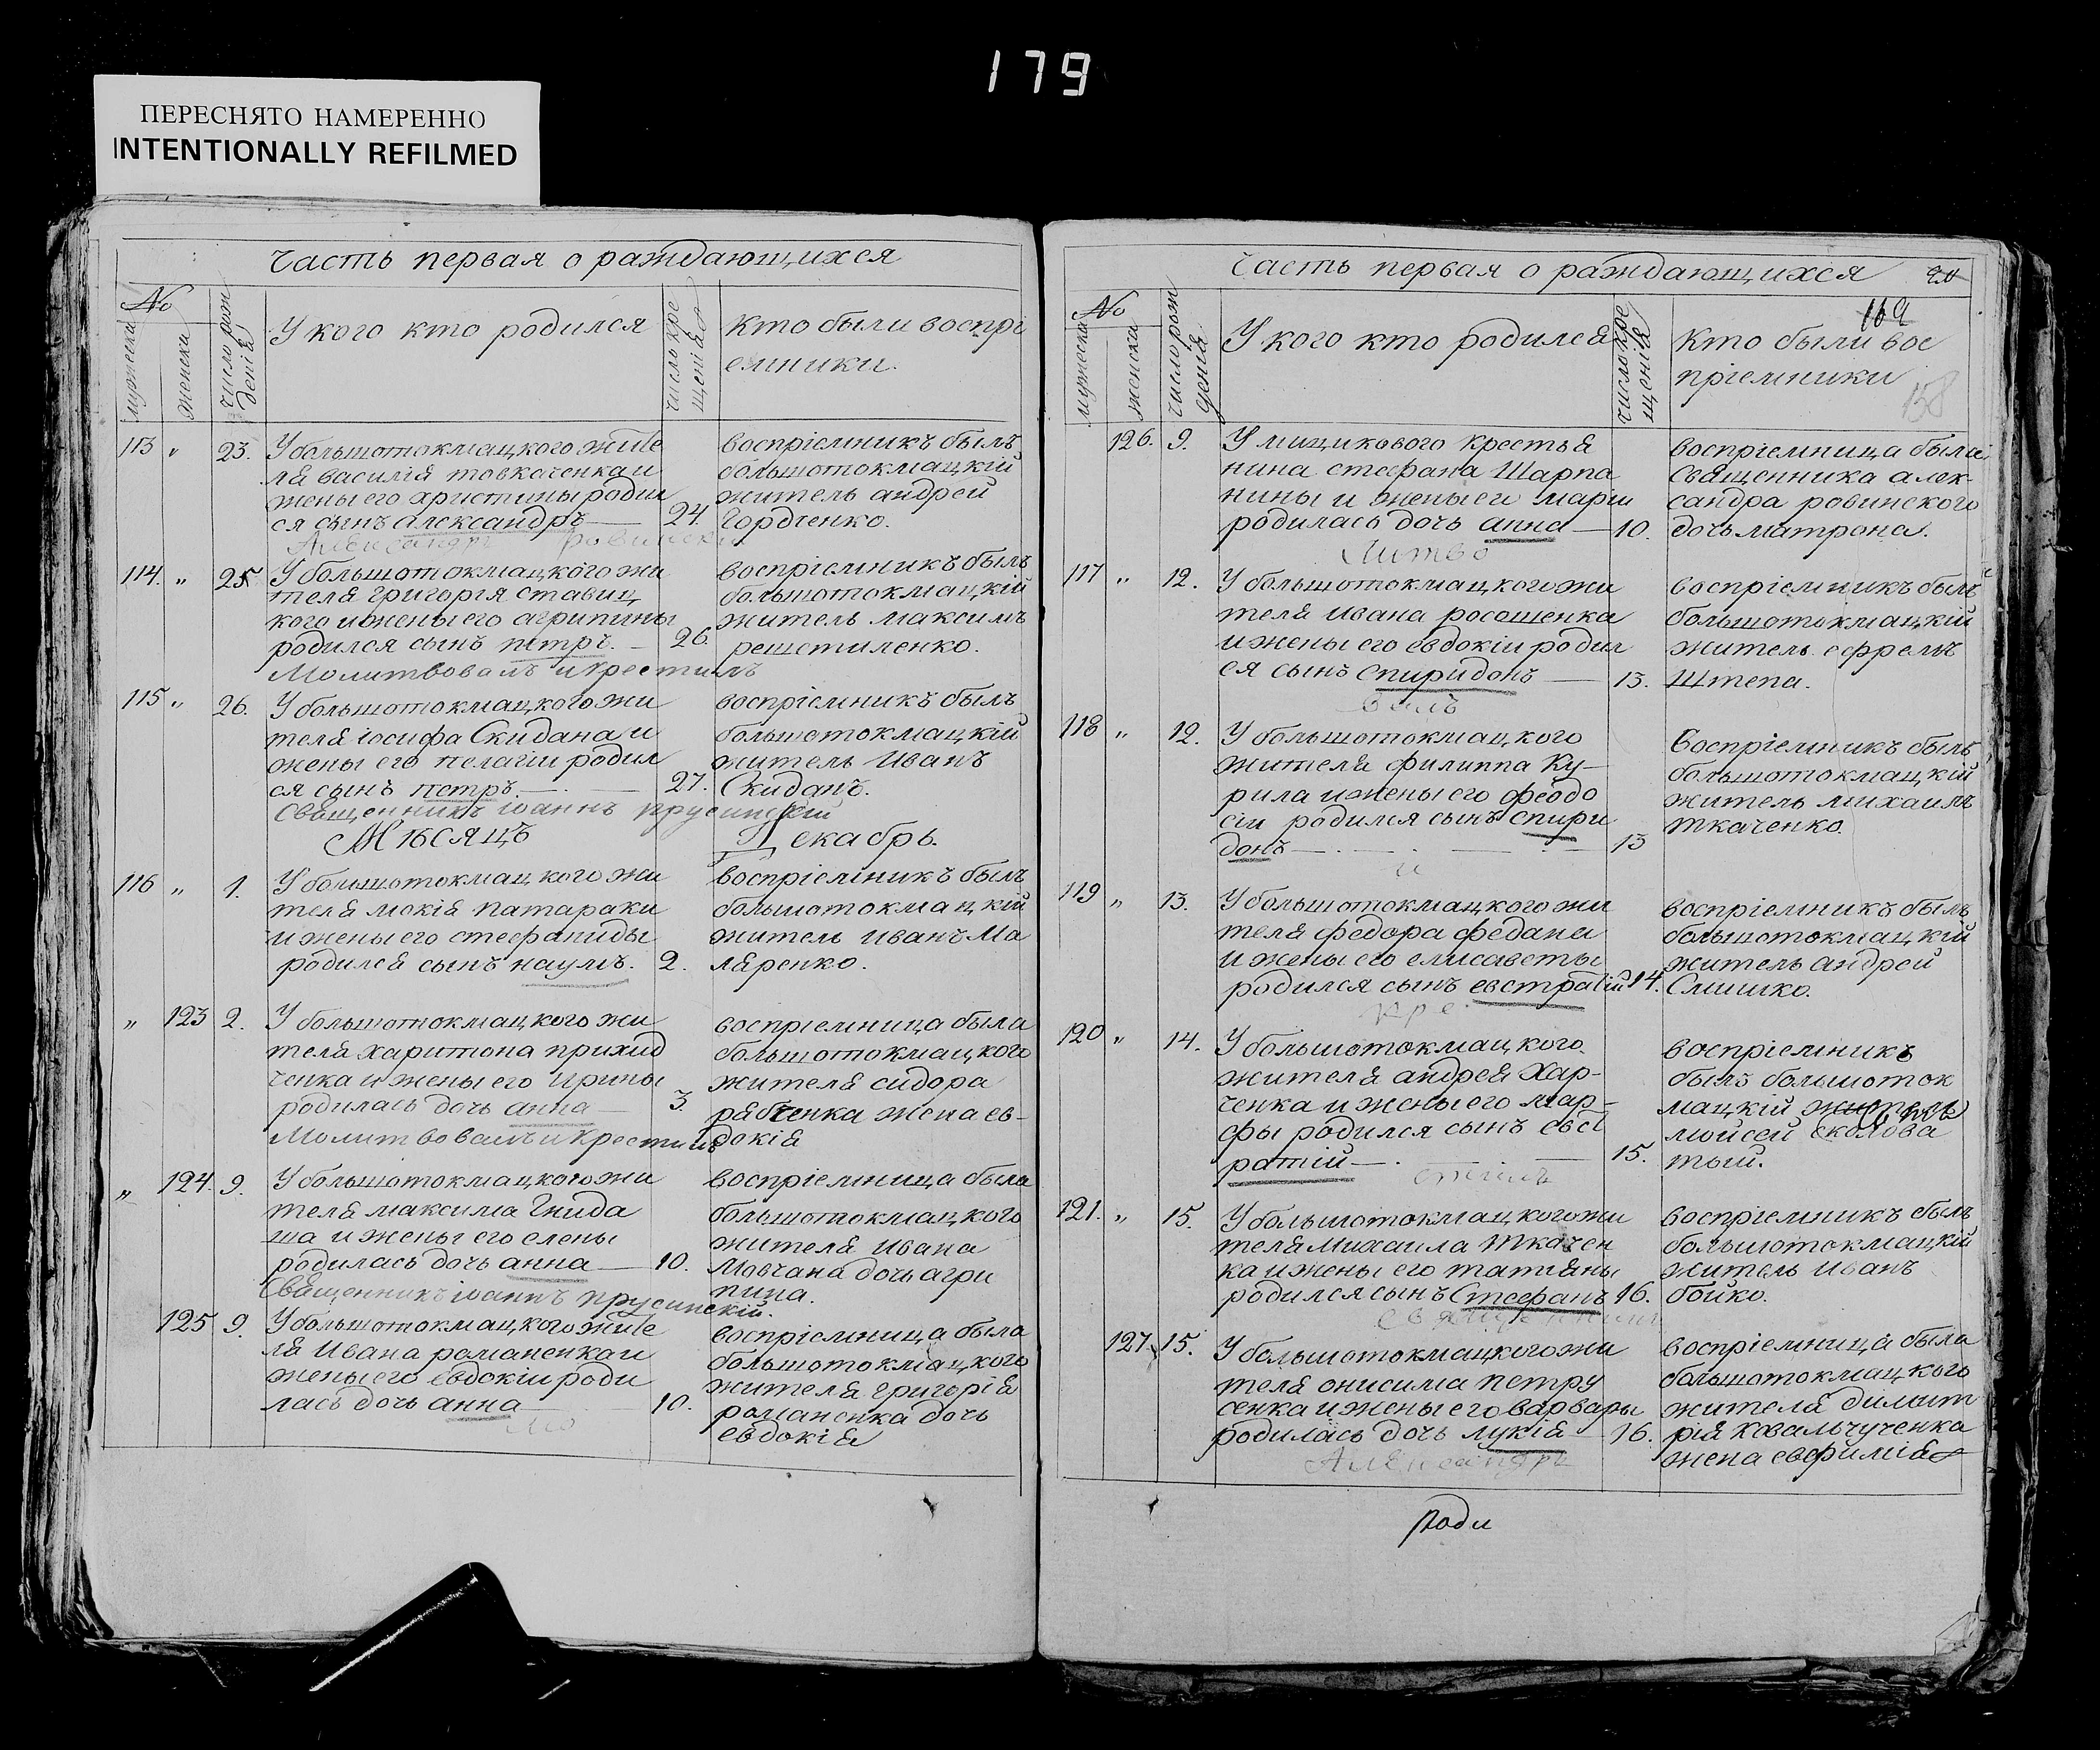 179
ПЕРЕСНЯТО НАМЕРЕННО
INTENTIONALLY REFILMED
Часть первая о раждающихся
No
мужеска
женска
число рож
денія
У кого кто родился
число кре
щенія
Кто были воспрі
емники.
113 „ 23. У большотокмацкого жите
ля василія товкаченка и
жены его христины родил
ся сынъ александръ — 24.
воспріемникъ былъ
большотокмацкій
житель андрей
Гордіенко.
Александръ ровинскі
114. „ 25. У большотокмацкого жи
теля григорія ставиц
кого и жены его агрипины
родился сынъ петръ. — 26.
воспріемникъ былъ
большотокмацкій
житель максимъ
решетиленко.
Молитвовалъ и крестилъ
115 „ 26. У большотокмацкого жи
теля іосифа Скидана и
жены его пелагіи родил
ся сынъ петръ. — 27.
воспріемникъ былъ
большотокмацкій
житель Иванъ
Скиданъ.
Священникъ іоаннъ прусинскій
Мѣсяцъ Декабрь.
116 „ 1. У большотокмацкого жи
теля мокія патараки
и жены его стефаниды
родился сынъ наумъ. 2.
воспріемникъ былъ
большотокмацкій
житель иванъ Ма
ляренко.
„ 123 2. У большотокмацкого жи
теля харитона приход
ченка и жены его ирины
родилась дочь анна — 3.
воспріемница была
большотокмацкого
жителя сидора
рябченка жена ев-
докія
Молитвовалъ и крестилъ
„ 124. 9. У большотокмацкого жи
теля максима Гнида
ша и жены его елены
родилась дочь анна — 10.
воспріемница была
большотокмацкого
жителя ивана
Мовчана дочь агри
пина.
Священникъ іоаннъ прусинскій.
125 9. У большотокмацкого жите
ля Ивана романенка и
жены его евдокіи роди
лась дочь анна 10.
воспріемница была
большотокмацкого
жителя григорія
романенка дочь
евдокія
мо
Часть первая о раждающихся
169
158
No
мужеска
женска
число рож
денія
У кого кто родился
число кре
щенія
Кто были вос
пріемники
126. 9. У мищикового крестья
нина стефана Шарпа
нины и жены еи маріи
родилась дочь анна — 10.
воспріемница была
священника алек-
сандра ровинского
дочь матрона.
литво
117 „ 12. У большотокмацкого жи
теля ивана росошенка
и жены его евдокіи родил
ся сынъ спиридонъ — 13.
воспріемникъ былъ
большотокмацкій
житель ефремъ
Штепа.
валъ
118 „ 12. У большотокмацкого
жителя филиппа Ку-
рила и жены его феодо
сіи родился сынъ спири
донъ — 13
Воспріемникъ былъ
большотокмацкій
житель михаилъ
ткаченко.
и
119 „ 13. У большотокмацкого жи
теля федора федана
и жены его елисаветы
родился сынъ евстратій 14.
воспріемникъ былъ
большотокмацкій
житель андрей
Слишко.
кре
120 „ 14. У большотокмацкого
жителя андрея Хар-
ченка и жены его мар-
фы родился сынъ евст
ратій — 15.
воспріемникъ
былъ большоток
мацкій житель
мойсей сколова
тый.
стилъ
121. „ 15. У большотокмацкого жи
теля Михаила Ткачен
ка и жены его татіяны
родился сынъ Стефанъ 16.
воспріемникъ былъ
большотокмацкій
житель Иванъ
бойко.
священникъ
127. 15. У большотокмацкого жи
теля онисима петру
сенка и жены его варвары
родилась дочь лукія — 16.
воспріемница была
большотокмацкого
жителя димит
рія ковальчученка
жена евфимія
Александръ
Роди